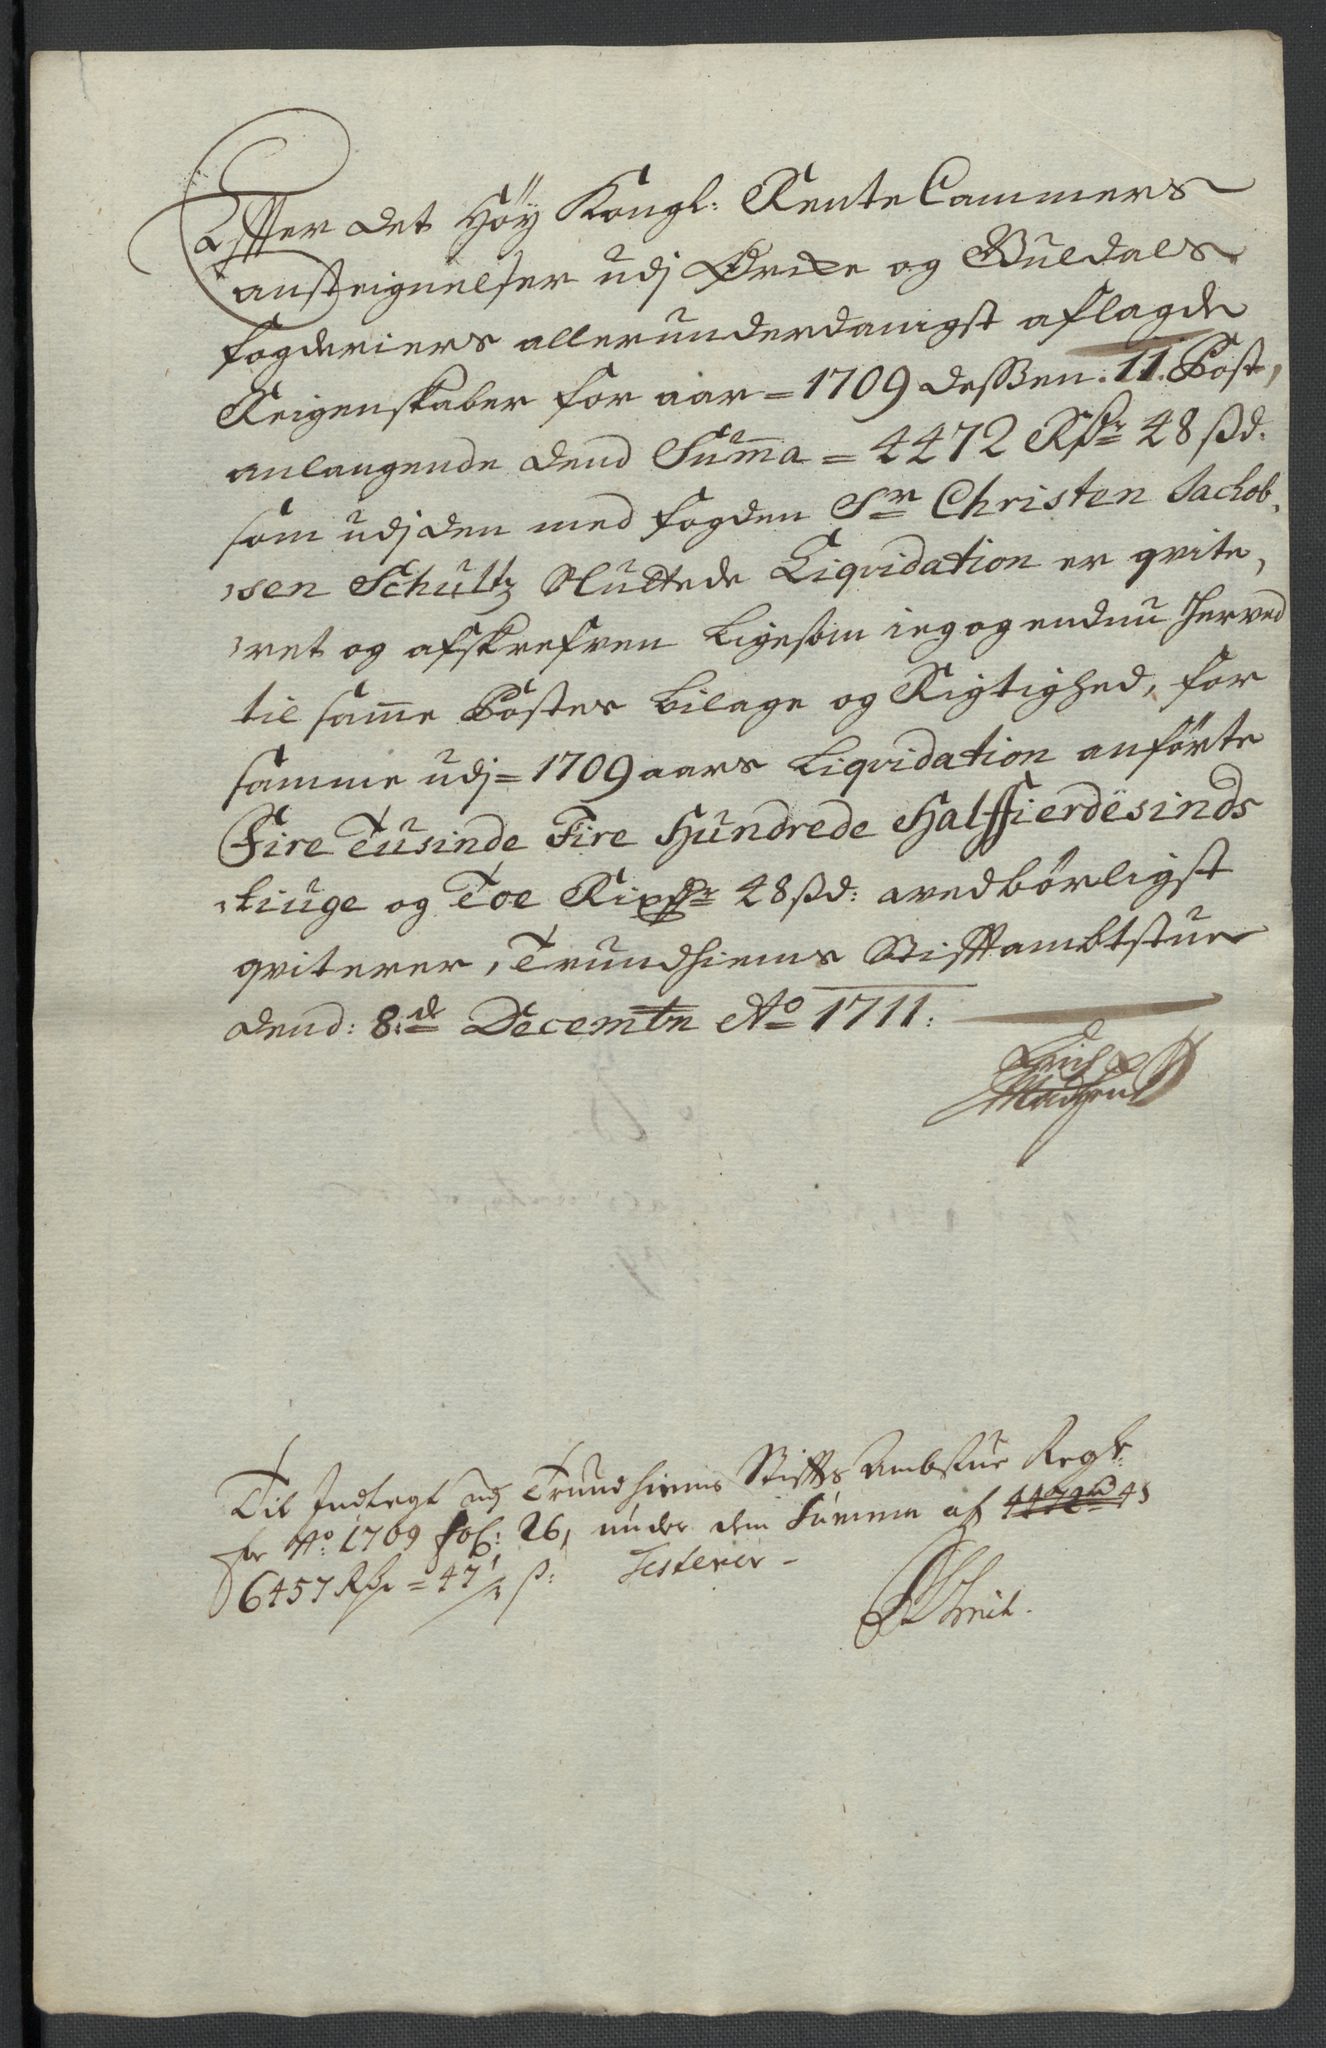 Effter det Höÿ Kongl: Rente Cammers
antteignelser udj Orche og Guldals
fogderiers allerunderdanigst aflagde
Reigenskaber for aar = 1709 dessen. 11. Post,
anlangende dend Sum̃a = 4472 Rdr 48 ss d.
som udj den med fogden Sr Christen Jachob,
,sen Schultz Sluttede Liqvidation er qvite,
,ret og afskrefven Ligesom ieg og endnu herved
til sam̃e Postes bilage og Rigtighed, for
samme udj = 1709 aars Liqvidation anförte
Fire Tusinde Fire Hundrede Halffierdesinds
,tiuge og Toe Rixdr 48 ss d: vedbörligst
qviterer, Trundhiems Stifftambtstue
dend: 8:de Decembr Ao 1711:
Erich
Madhsen
Til Indlegt udj Trundhiems Stiffts Ambstue Regsk:
for Ao: 1709 fol: 26, under den Summa af 4472 rd 48
6457 Rdr = 47 1/2 ss: Testerer -
Smit.